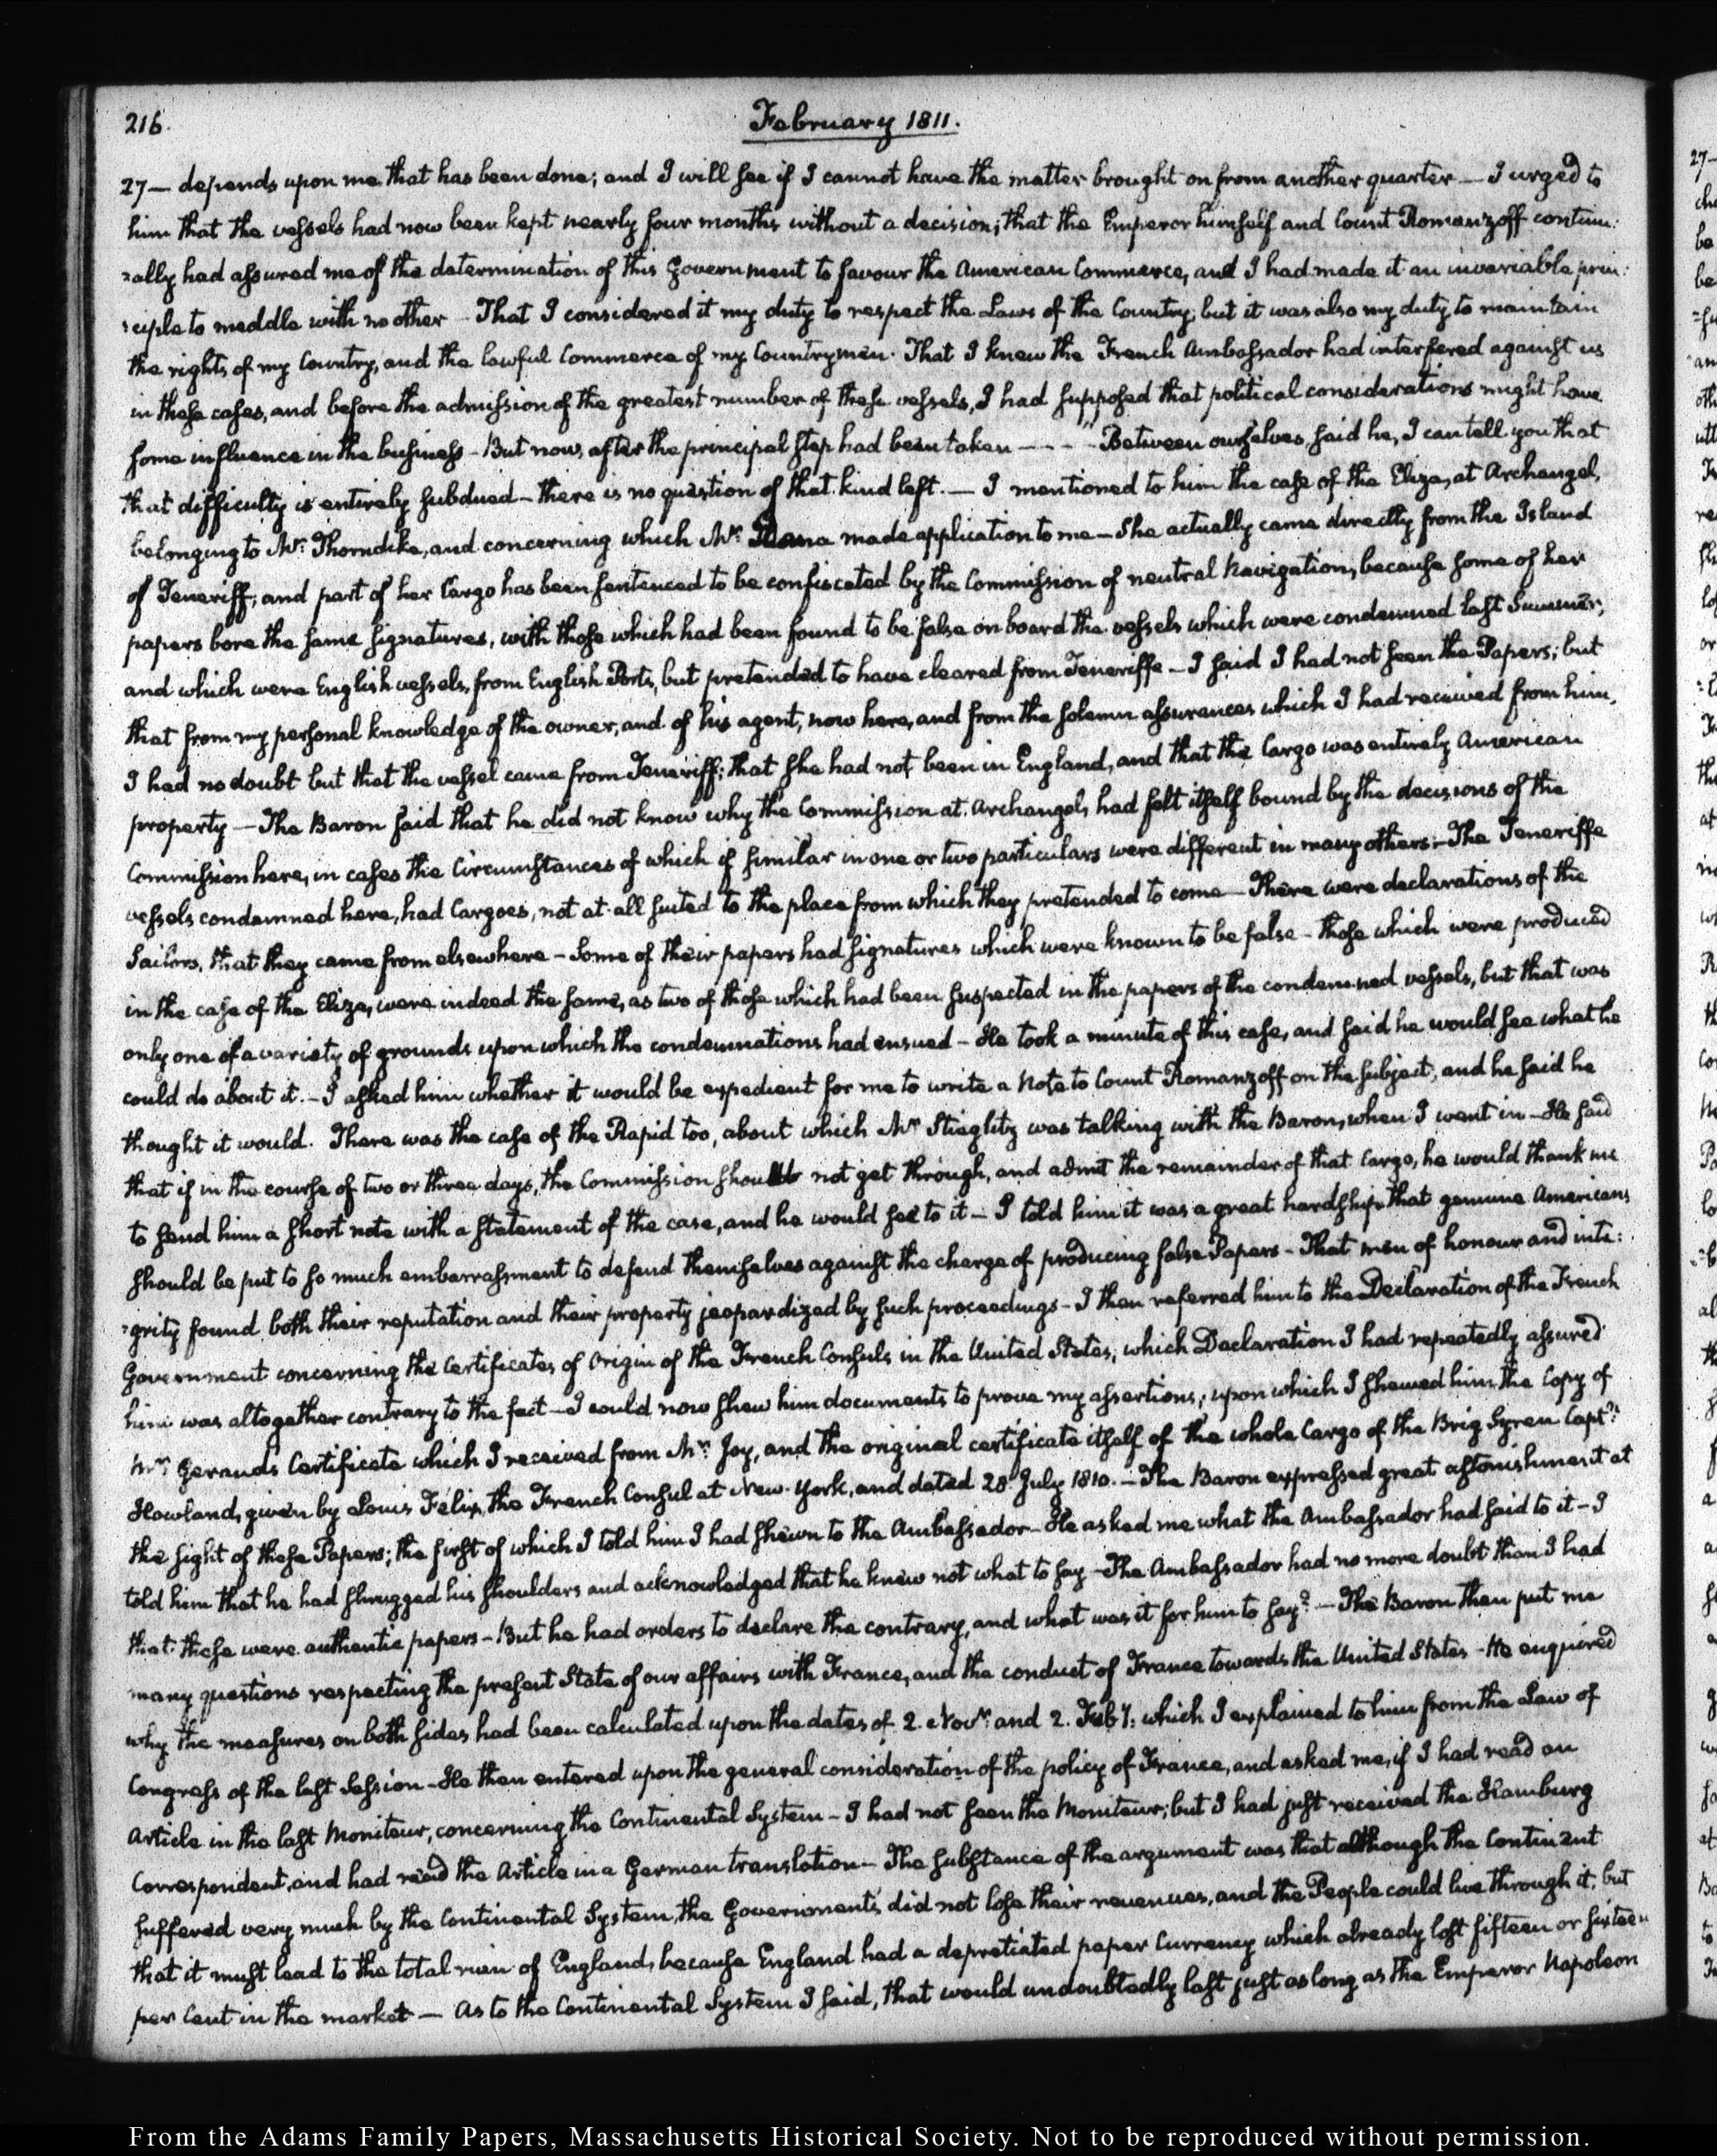 216.
February 1811.
27— depends upon me that has been done; and I will see if I cannot have the matter brought on from another quarter — I urged to
him that the vessels had now been kept nearly four months without a decision; that the Emperor himself and Count Romanzoff contin:
:ually had assured me of the determination of this Government to favour the American Commerce, and I had made it an invariable prin:
:ciple to meddle with no other — That I considered it my duty to respect the Laws of the Country; but it was also my duty to maintain
the rights of my Country, and the lawful Commerce of my Countrymen. That I knew the French Ambassador had interfered against us
in these cases, and before the admission of the greatest number of these vessels, I had supposed that political considerations might have
some influence in the business — But now, after the principal step had been taken - - - "Between ourselves, said he, I can tell you that
that difficulty is entirely subdued — there is no question of that kind left. — I mentioned to him the case of the Eliza, at Archangel,
belonging to Mr: Thorndike, and concerning which Mr: made application to me — She actually came directly from the Island
of Teneriff; and part of her Cargo has been sentenced to be confiscated by the Commission of neutral Navigation, because some of her
papers bore the same signatures, with those which had been found to be false on board the vessels which were condemned last Summer,
and which were English vessels, from English Ports, but pretended to have cleared from Teneriffe — I said I had not seen the Papers; but
that from my personal knowledge of the owner, and of his agent, now here, and from the solemn assurances which I had received from him,
I had no doubt but that the vessel came from Teneriff; that she had not been in England, and that the Cargo was entirely American
property — The Baron said that he did not know why the Commission at Archangel, had felt itself bound by the decisions of the
Commission here, in cases the Circumstances of which if similar in one or two particulars were different in many others — The Teneriffe
vessels condemned here, had Cargoes, not at all suited to the place from which they pretended to come — There were declarations of the
Sailors, that they came from elsewhere — Some of their papers had signatures which were known to be false — those which were produced
in the case of the Eliza, were indeed the same, as two of those which had been suspected in the papers of the condemned vessels, but that was
only one of a variety of grounds upon which the condemnations had ensued — He took a minute of this case, and said he would see what he
could do about it. — I asked him whether it would be expedient for me to write a Note to Count Romanzoff on the subject, and he said he
thought it would. There was the case of the Rapid too, about which Mr Stieglitz was talking with the Baron, when I went in — He said
that if in the course of two or three days, the Commission should not get through, and admit the remainder of that Cargo, he would thank me
to send him a short note with a statement of the case, and he would see to it — I told him it was a great hardship that genuine Americans
should be put to so much embarrassment to defend themselves against the charge of producing false Papers — That men of honour and inte:
:grity found both their reputation and their property jeopardized by such proceedings — I then referred him to the Declaration of the French
Government concerning the Certificates of Origin of the French Consuls in the United States, which Declaration I had repeatedly assured
him was altogether contrary to the fact — I could now shew him documents to prove my assertions; upon which I shewed him the Copy of
Mr: Geraud's Certificate which I received from Mr: Joy, and the original certificate itself of the whole Cargo of the Brig Syren Captn:
Howland, given by Louis Felix, the French Consul at New-York, and dated 28 July 1810. — The Baron expressed great astonishment at
the sight of these Papers; the first of which I told him I had shewn to the Ambassador — He asked me what the Ambassador had said to it — I
told him that he had shrugged his shoulders and acknowledged that he knew not what to say — The Ambassador had no more doubt than I had
that these were authentic papers — But he had orders to declare the contrary, and what was it for him to say? — The Baron then put me
many questions respecting the present State of our affairs with France, and the conduct of France towards the United States — He enquired
why the measures on both sides had been calculated upon the dates of 2. Novr: and 2. Feby: which I explained to him from the Law of
Congress of the last Session — He then entered upon the general consideration of the policy of France, and asked me, if I had read an
Article in the last Moniteur, concerning the Continental System — I had not seen the Moniteur; but I had just received the Hamburg
Correspondent, and had read the Article in a German translation — The substance of the argument was that although the Continent
suffered very much by the Continental System, the Governments did not lose their revenues, and the People could live through it; but
that it must lead to the total ruin of England, because England had a depreciated paper Currency which already lost fifteen or sixteen
per Cent in the market — As to the Continental System I said, that would undoubtedly last just as long as the Emperor Napoleon
From the Adams Family Papers, Massachusetts Historical Society. Not to be reproduced without permission.